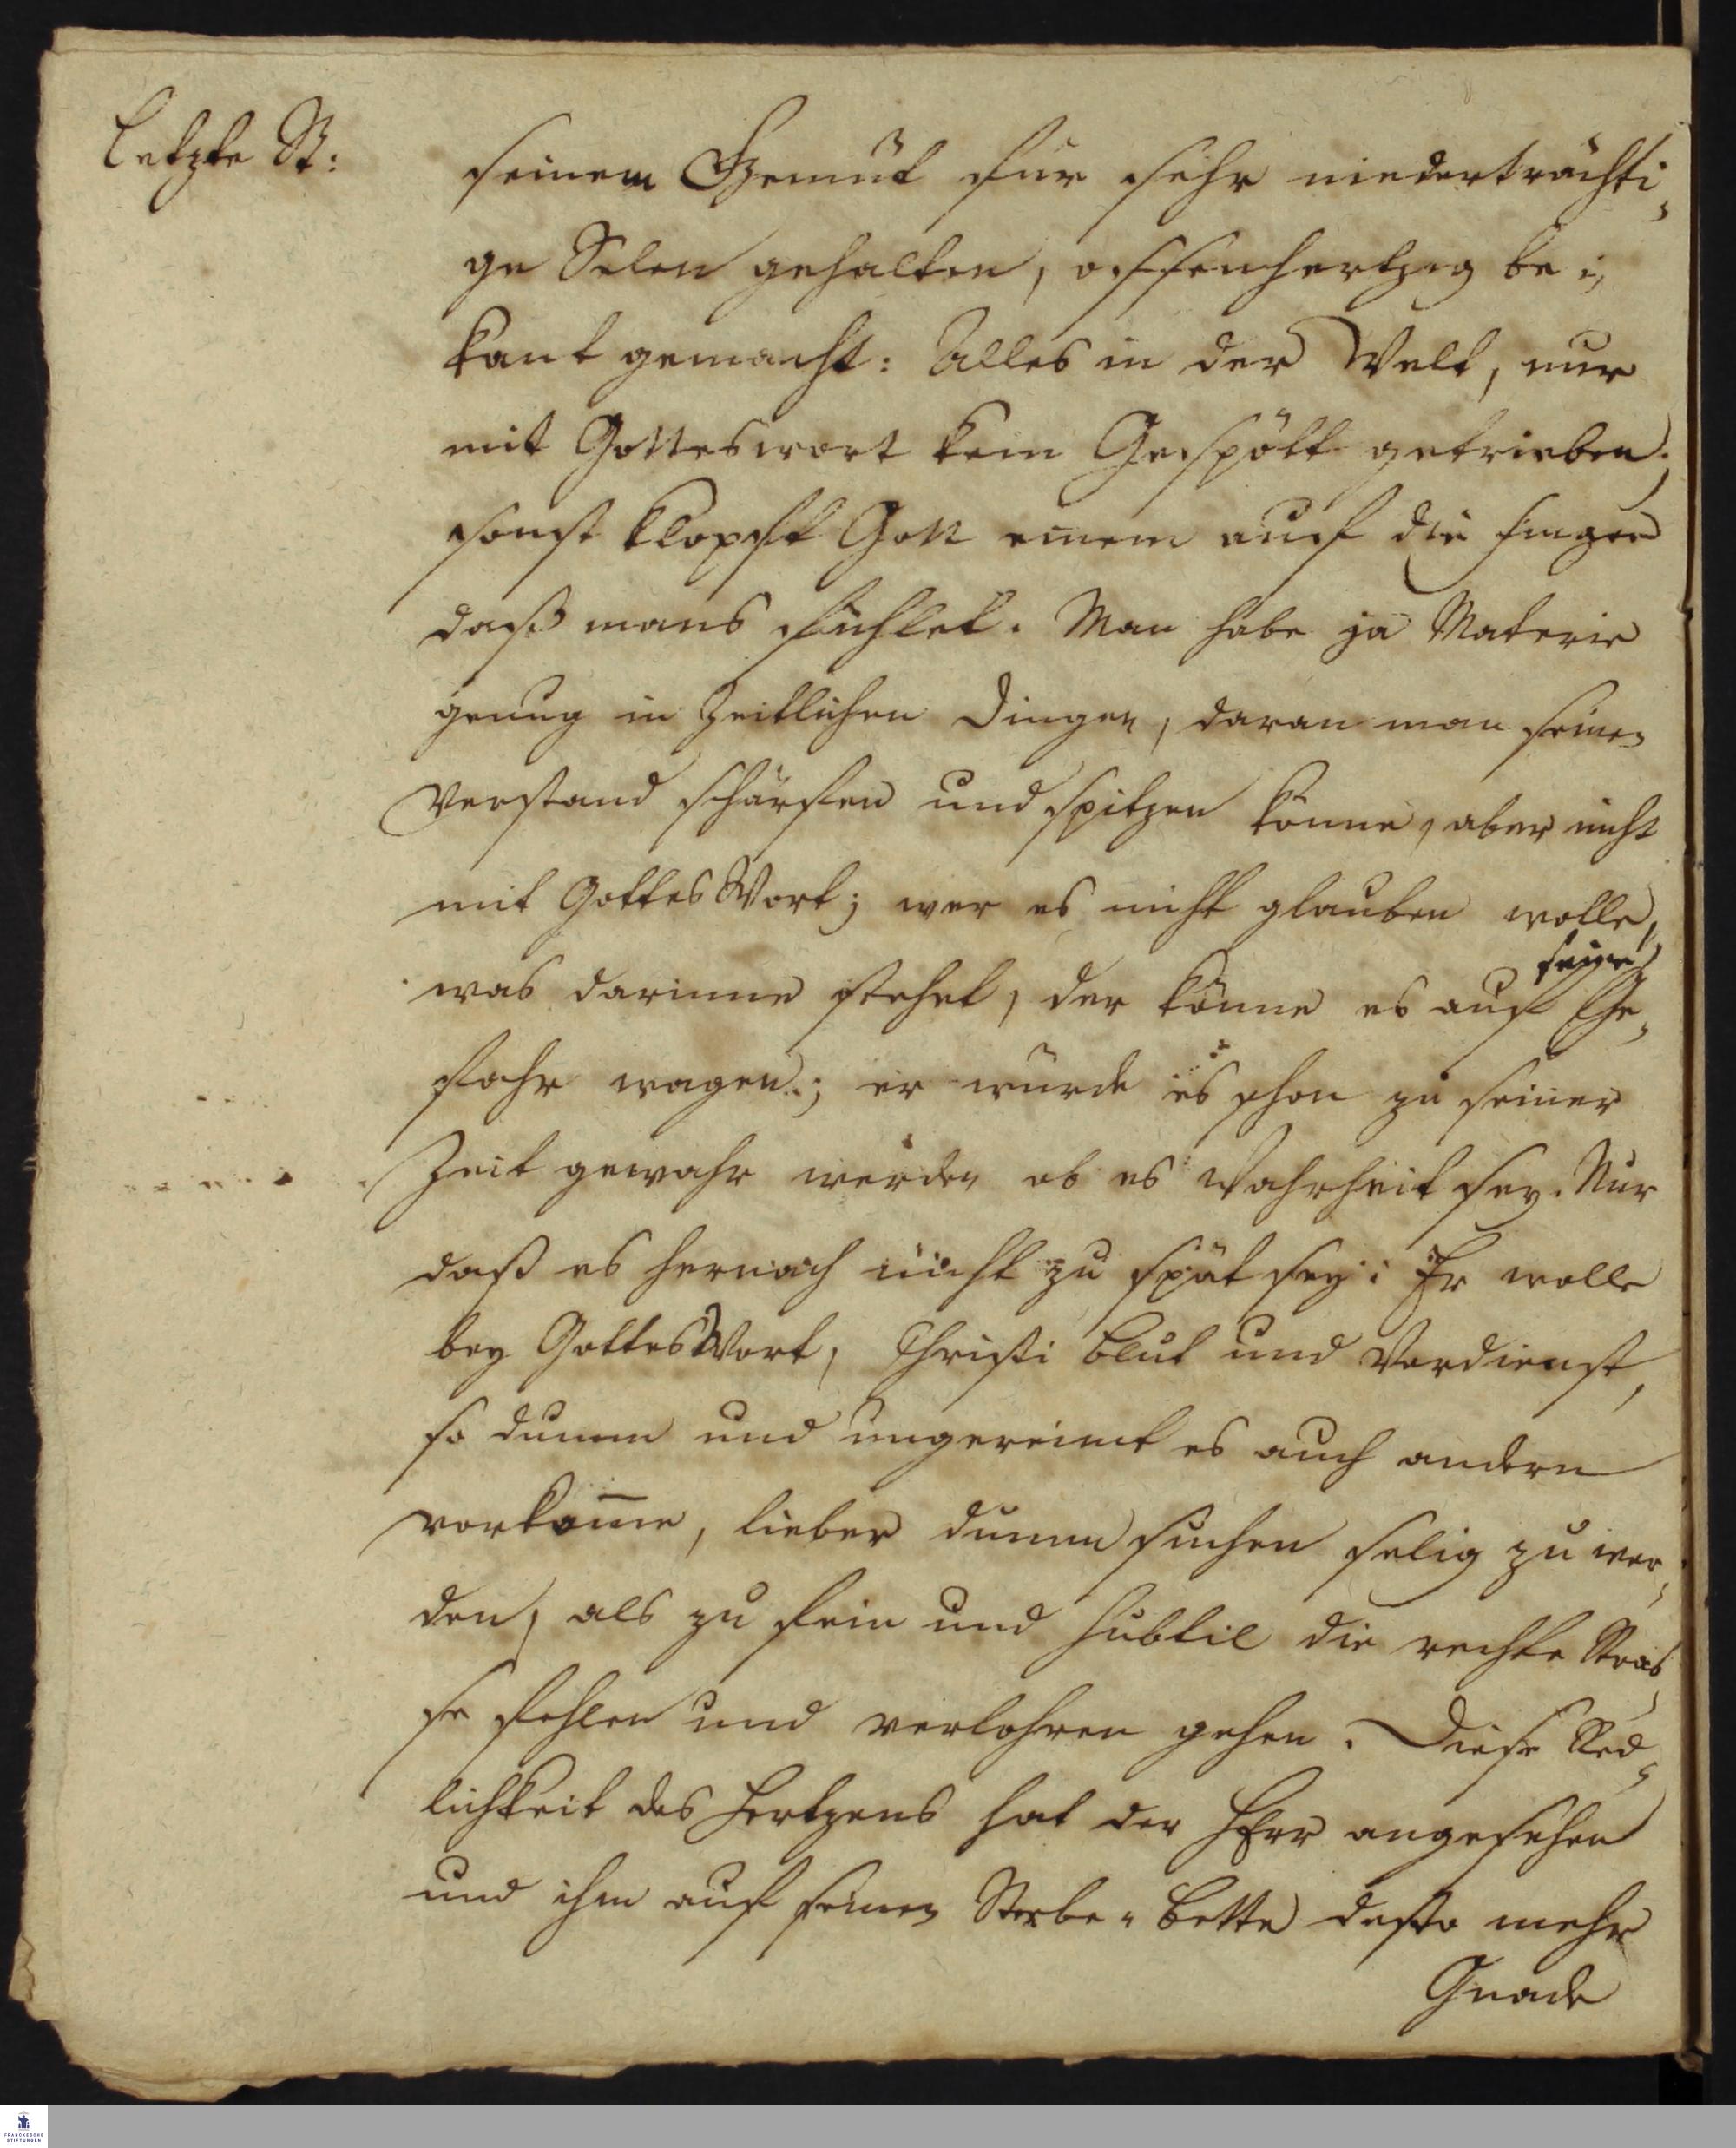 Letzte St:
seinem Gemüt für sehr niederträchti,
ge Selen gehalten, offenhertzig be,
kant gemacht: Alles in der Welt, nur
mit Gotteswort kein Gespött getrieben,
sonst klopft Gott einem auf die finger
daß mans fühlet. Man habe ja Materie
genug in Zeitlichen Dingen, daran man seinen
Verstand schärfen und spitzen könne, aber nicht
mit Gottes Wort; wer es nicht glauben wolle,
seine
was darinne stehet, der könne es auf Ge,
fahr wagen; er würde es schon zu seiner
Zeit gewahr werden ob es Wahrheit sey. Nur
daß es hernach nicht zu spät sey: Er wolle
bey Gottes Wort, Christi Blut und Verdienst,
so dumm und ungereimt es auch andern
vorkom̄e, lieber dumm suchen selig zu wer,
den, als zu fein und subtil die rechte Stras,
se fehlen und verlohren gehen. Diese Red,
lichkeit des Hertzens hat der HErr angesehen
und ihm auf seinen Sterbe-Bette desto mehr
Gnade
FRANCKESCHE
STIFTUNGEN